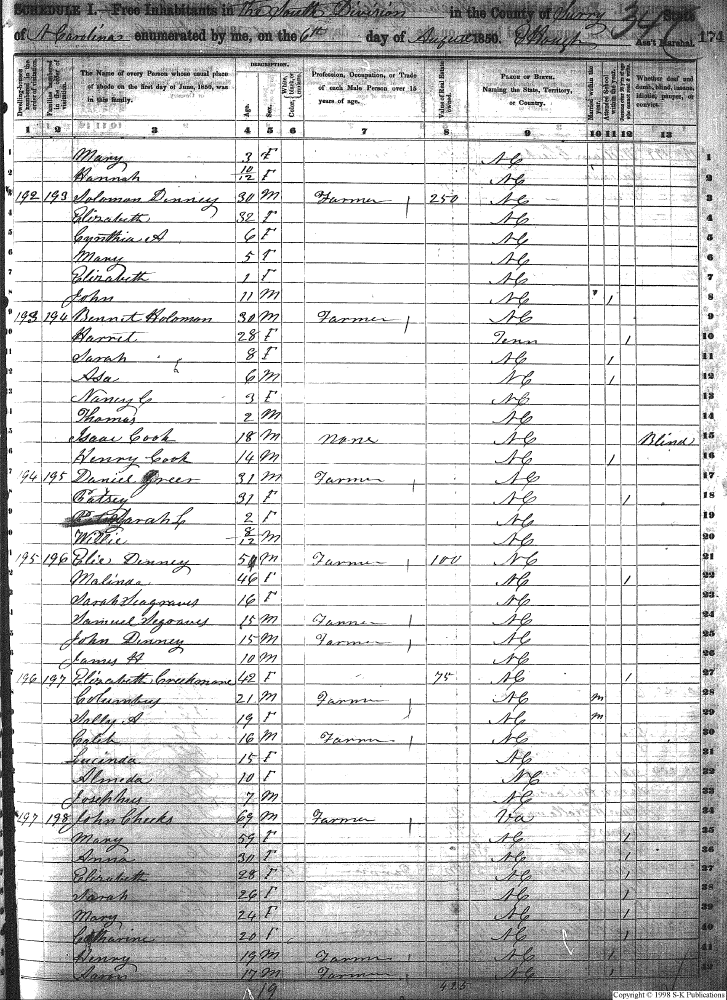 SCHEDULE I.—Free Inhabitants in The South Division in the County of Surry State
of N Carolina enumerated by me, on the 6th day of August 1850. Ass't Marshal. 174
DESCRIPTION.
Dwelling-houses numbered in the order of visitation.
Families numbered in the order of visitation.
The Name of every Person whose usual place of abode on the first day of June, 1850, was in this family.
Age.
Sex.
Color,
Profession, Occupation, or Trade of each Male Person over 15 years of age.
Value of Real Estate owned.
PLACE OF BIRTH. Naming the State, Territory, or Country.
Married within the year.
Attended School within the year.
Whether deaf and dumb, blind, insane, idiotic, pauper, or convict.
1 2 3 4 5 6 7 8 9 10 11 12 13
1 Mary 3 F NC 1
2 Hannah 10/12 F NC 2
3 192 193 Solomon Denney 30 M Farmer 250 NC 3
4 Elizabeth 32 F NC 4
5 Cynthia A 6 F NC 5
6 Mary 5 F NC 6
7 Elizabeth 1 F NC 7
8 John 11 M NC 1 8
9 193 194 Bennet Holoman 30 M Farmer NC 9
10 Harriet 28 F Tenn 1 10
11 Sarah 8 F NC 1 11
12 Asa 6 M NC 1 12
13 Nancy C 3 F NC 13
14 Thomas 2 M NC 14
15 Isaac Cook 18 M None NC Blind 15
16 Henry Cook 14 M NC 1 16
17 194 195 Daniel Greer 31 M Farmer NC 17
18 Patsey 31 F NC 1 18
19 Sarah C 2 F NC 19
20 Willie 8/12 M NC 20
21 195 196 Elie Denney 54 M Farmer 100 NC 21
22 Malinda 46 F NC 1 22
23 Sarah Seagraves 16 F NC 23
24 Samuel Segraves 15 M Farmer NC 24
25 John Denney 15 M Farmer NC 25
26 James H 10 M NC 26
27 196 197 Elizabeth Creekmore 42 F 75 NC 1 27
28 Columbus 21 M Farmer NC M 28
29 Sally A 19 F NC M 29
30 Caleb 16 M Farmer NC 30
31 Lucinda 15 F NC 31
32 Almeda 10 F NC 32
33 Josephus 7 M NC 33
34 197 198 John Cheeks 69 M Farmer Va 34
35 Mary 59 F NC 1 35
36 Anna 30 F NC 1 36
37 Elizabeth 28 F NC 1 37
38 Sarah 26 F NC 1 38
39 Mary 24 F NC 1 39
40 Catharine 20 F NC 1 40
41 Henry 19 M Farmer NC 1 41
42 17 M Farmer NC 1 42
19 425
Copyright © 1998 S-K Publications